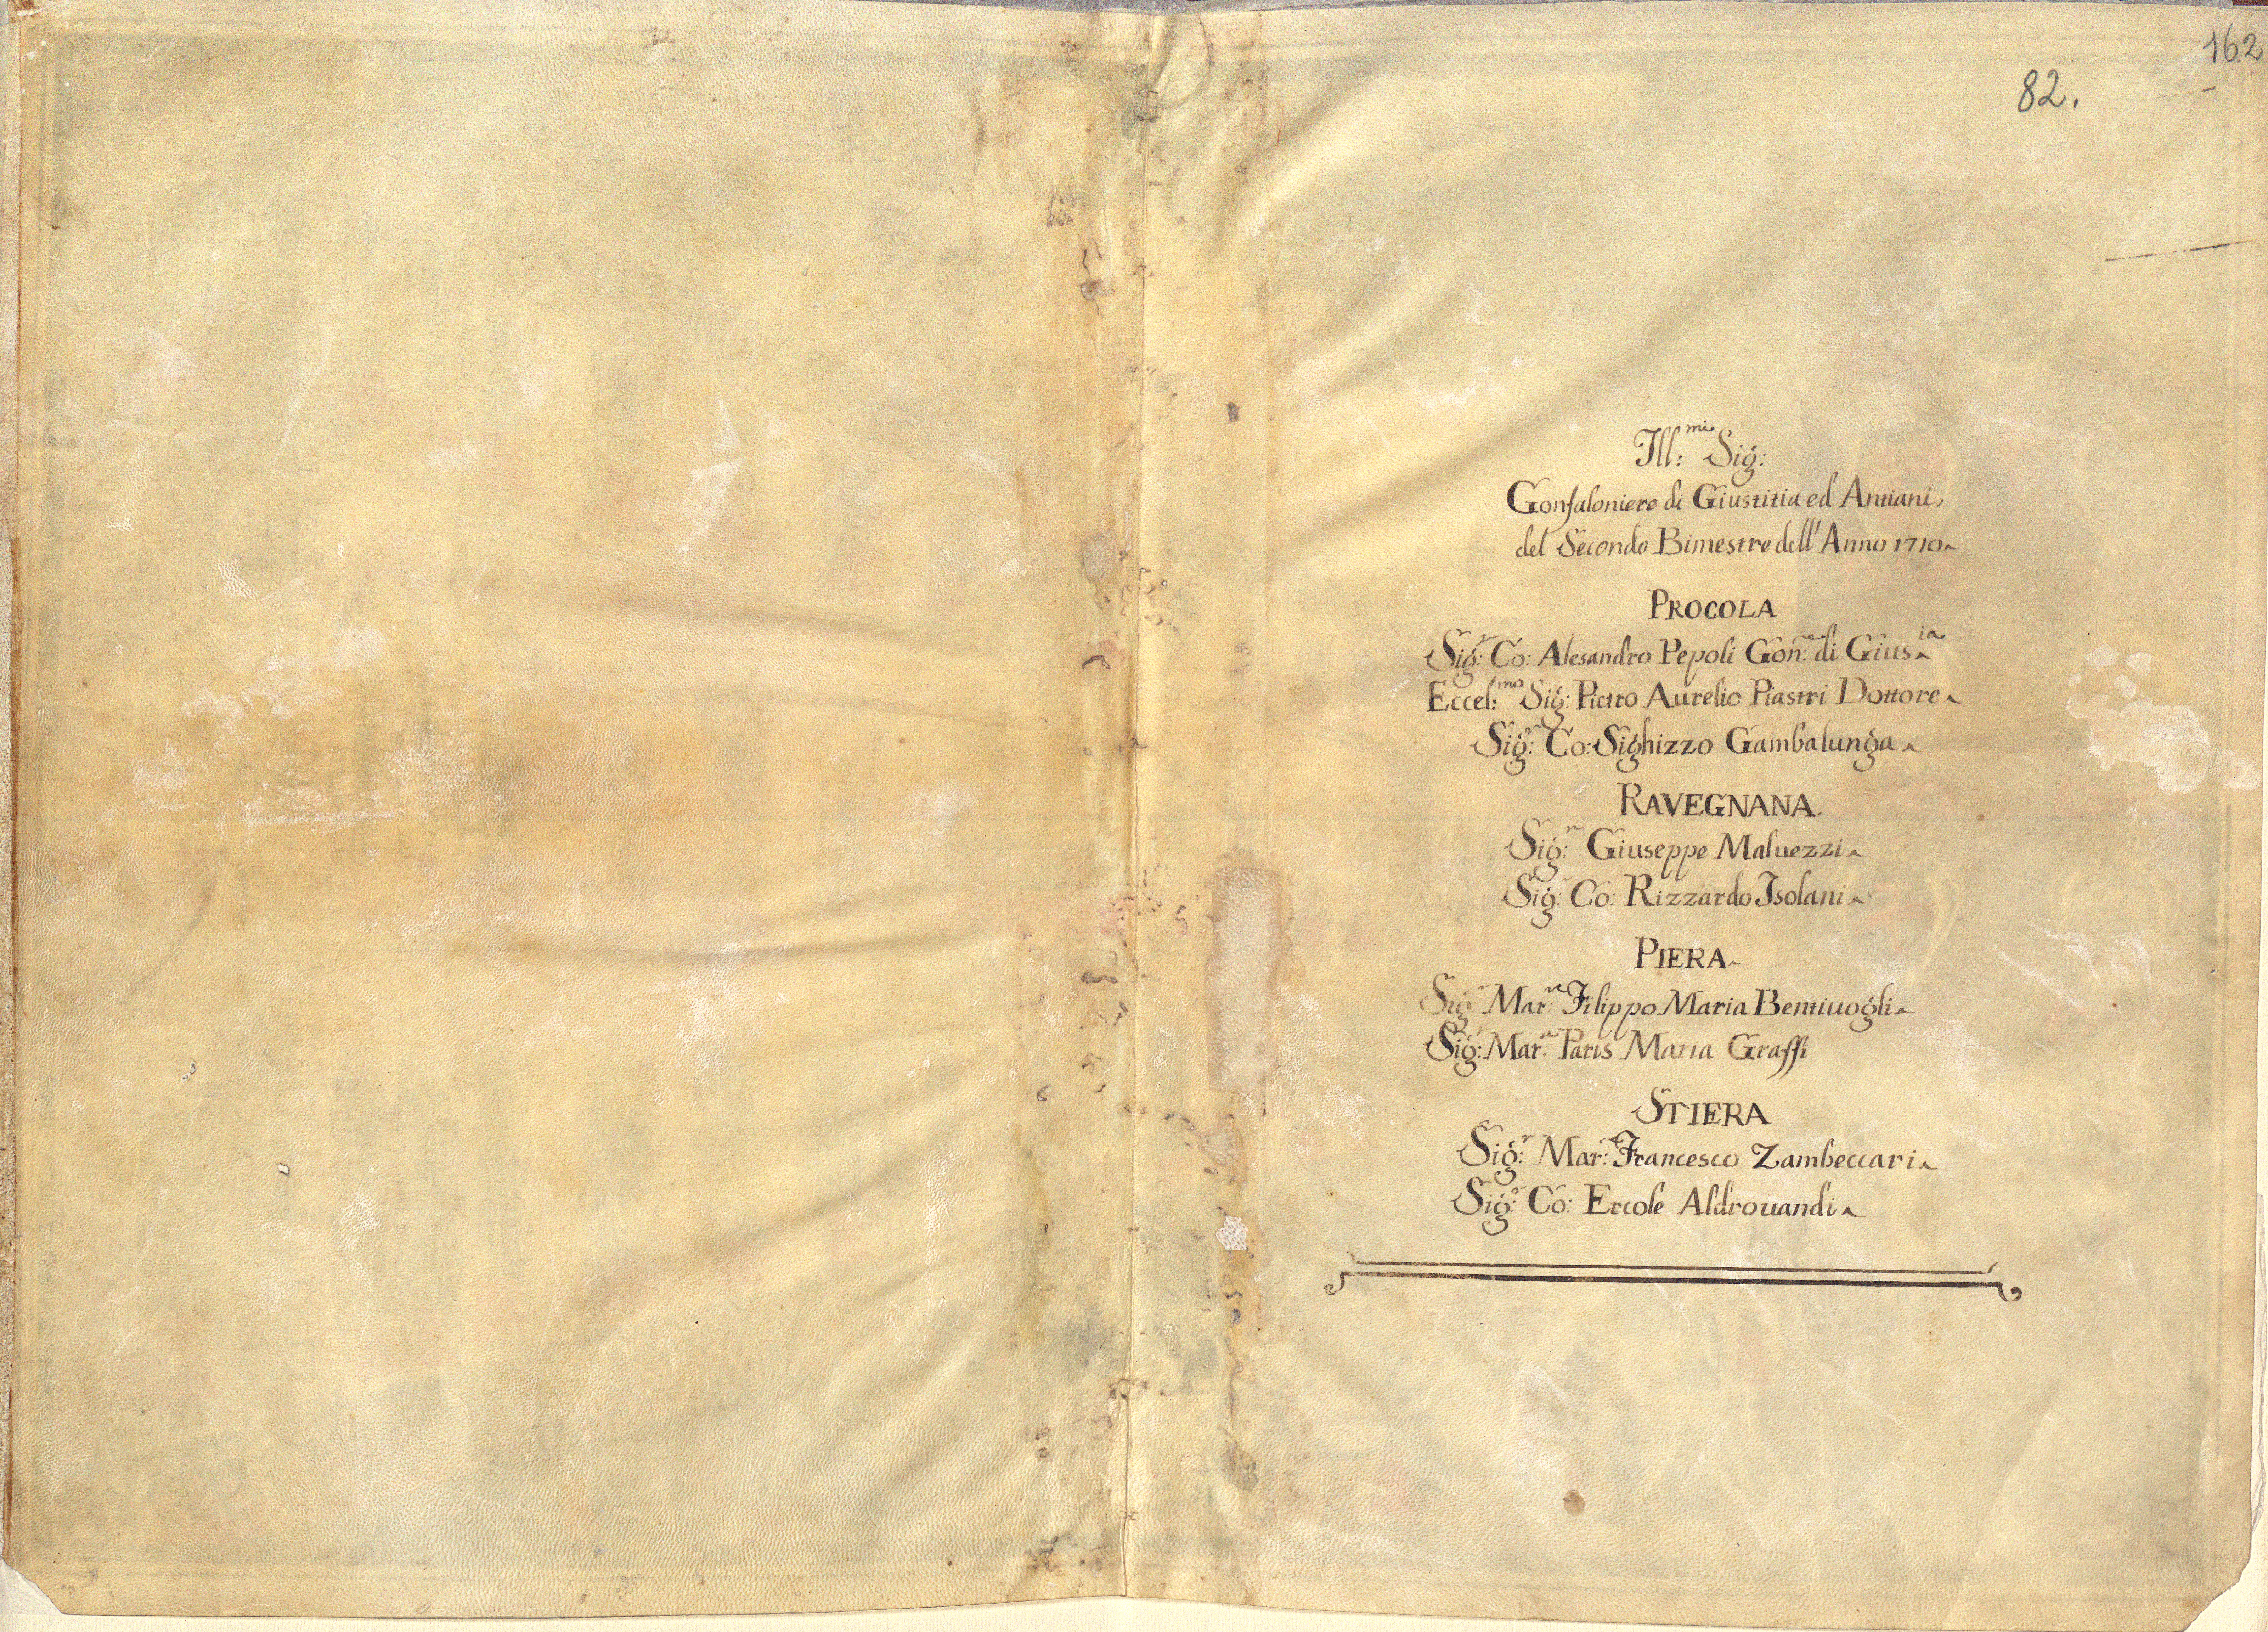 162
82.
Ill:mi Sig:
Gonfaloniere di Giustitia ed Antiani,
del Secondo Bimestre dell'Anno 1710
PROCOLA
Sig:r Co: Alesandro Pepoli Gon:e di Gius.ia
Eccel:mo Sig:r Pietro Aurelio Piastri Dottore
Sig:r Co: Sighizzo Gambalunga
RAVEGNANA.
Sig:r Giuseppe Maluezzi
Sig:r Co: Rizzardo Isolani
PIERA
Sig:r Mar:e Filippo Maria Bentiuogli
Sig:r Mar:e Paris Maria Graffi
STIERA
Sig:r Mar:e Francesco Zambeccari
Sig:r Co: Ercole Aldrouandi